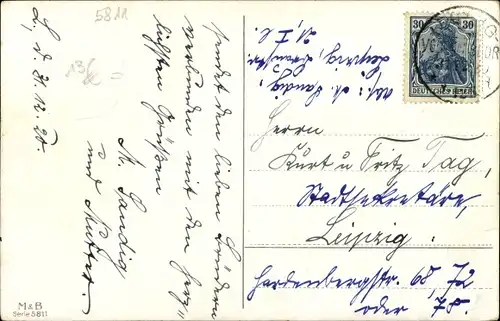 5811
L, d. 31.12.20.
sendet den lieben Brüdern
verbunden mit den herz-
lichsten Grüßen
M. Sandig
und Mutter.
Abs.: M. Sandig,
Leipzig,
21, I r.
30 30
DEUTSCHES REICH
Herrn
Kurt u Fritz Tag,
Stadtsekretäre,
Leipzig.
Hardenbergstr. 68, 72
oder 78.
M&B
Serie 5811